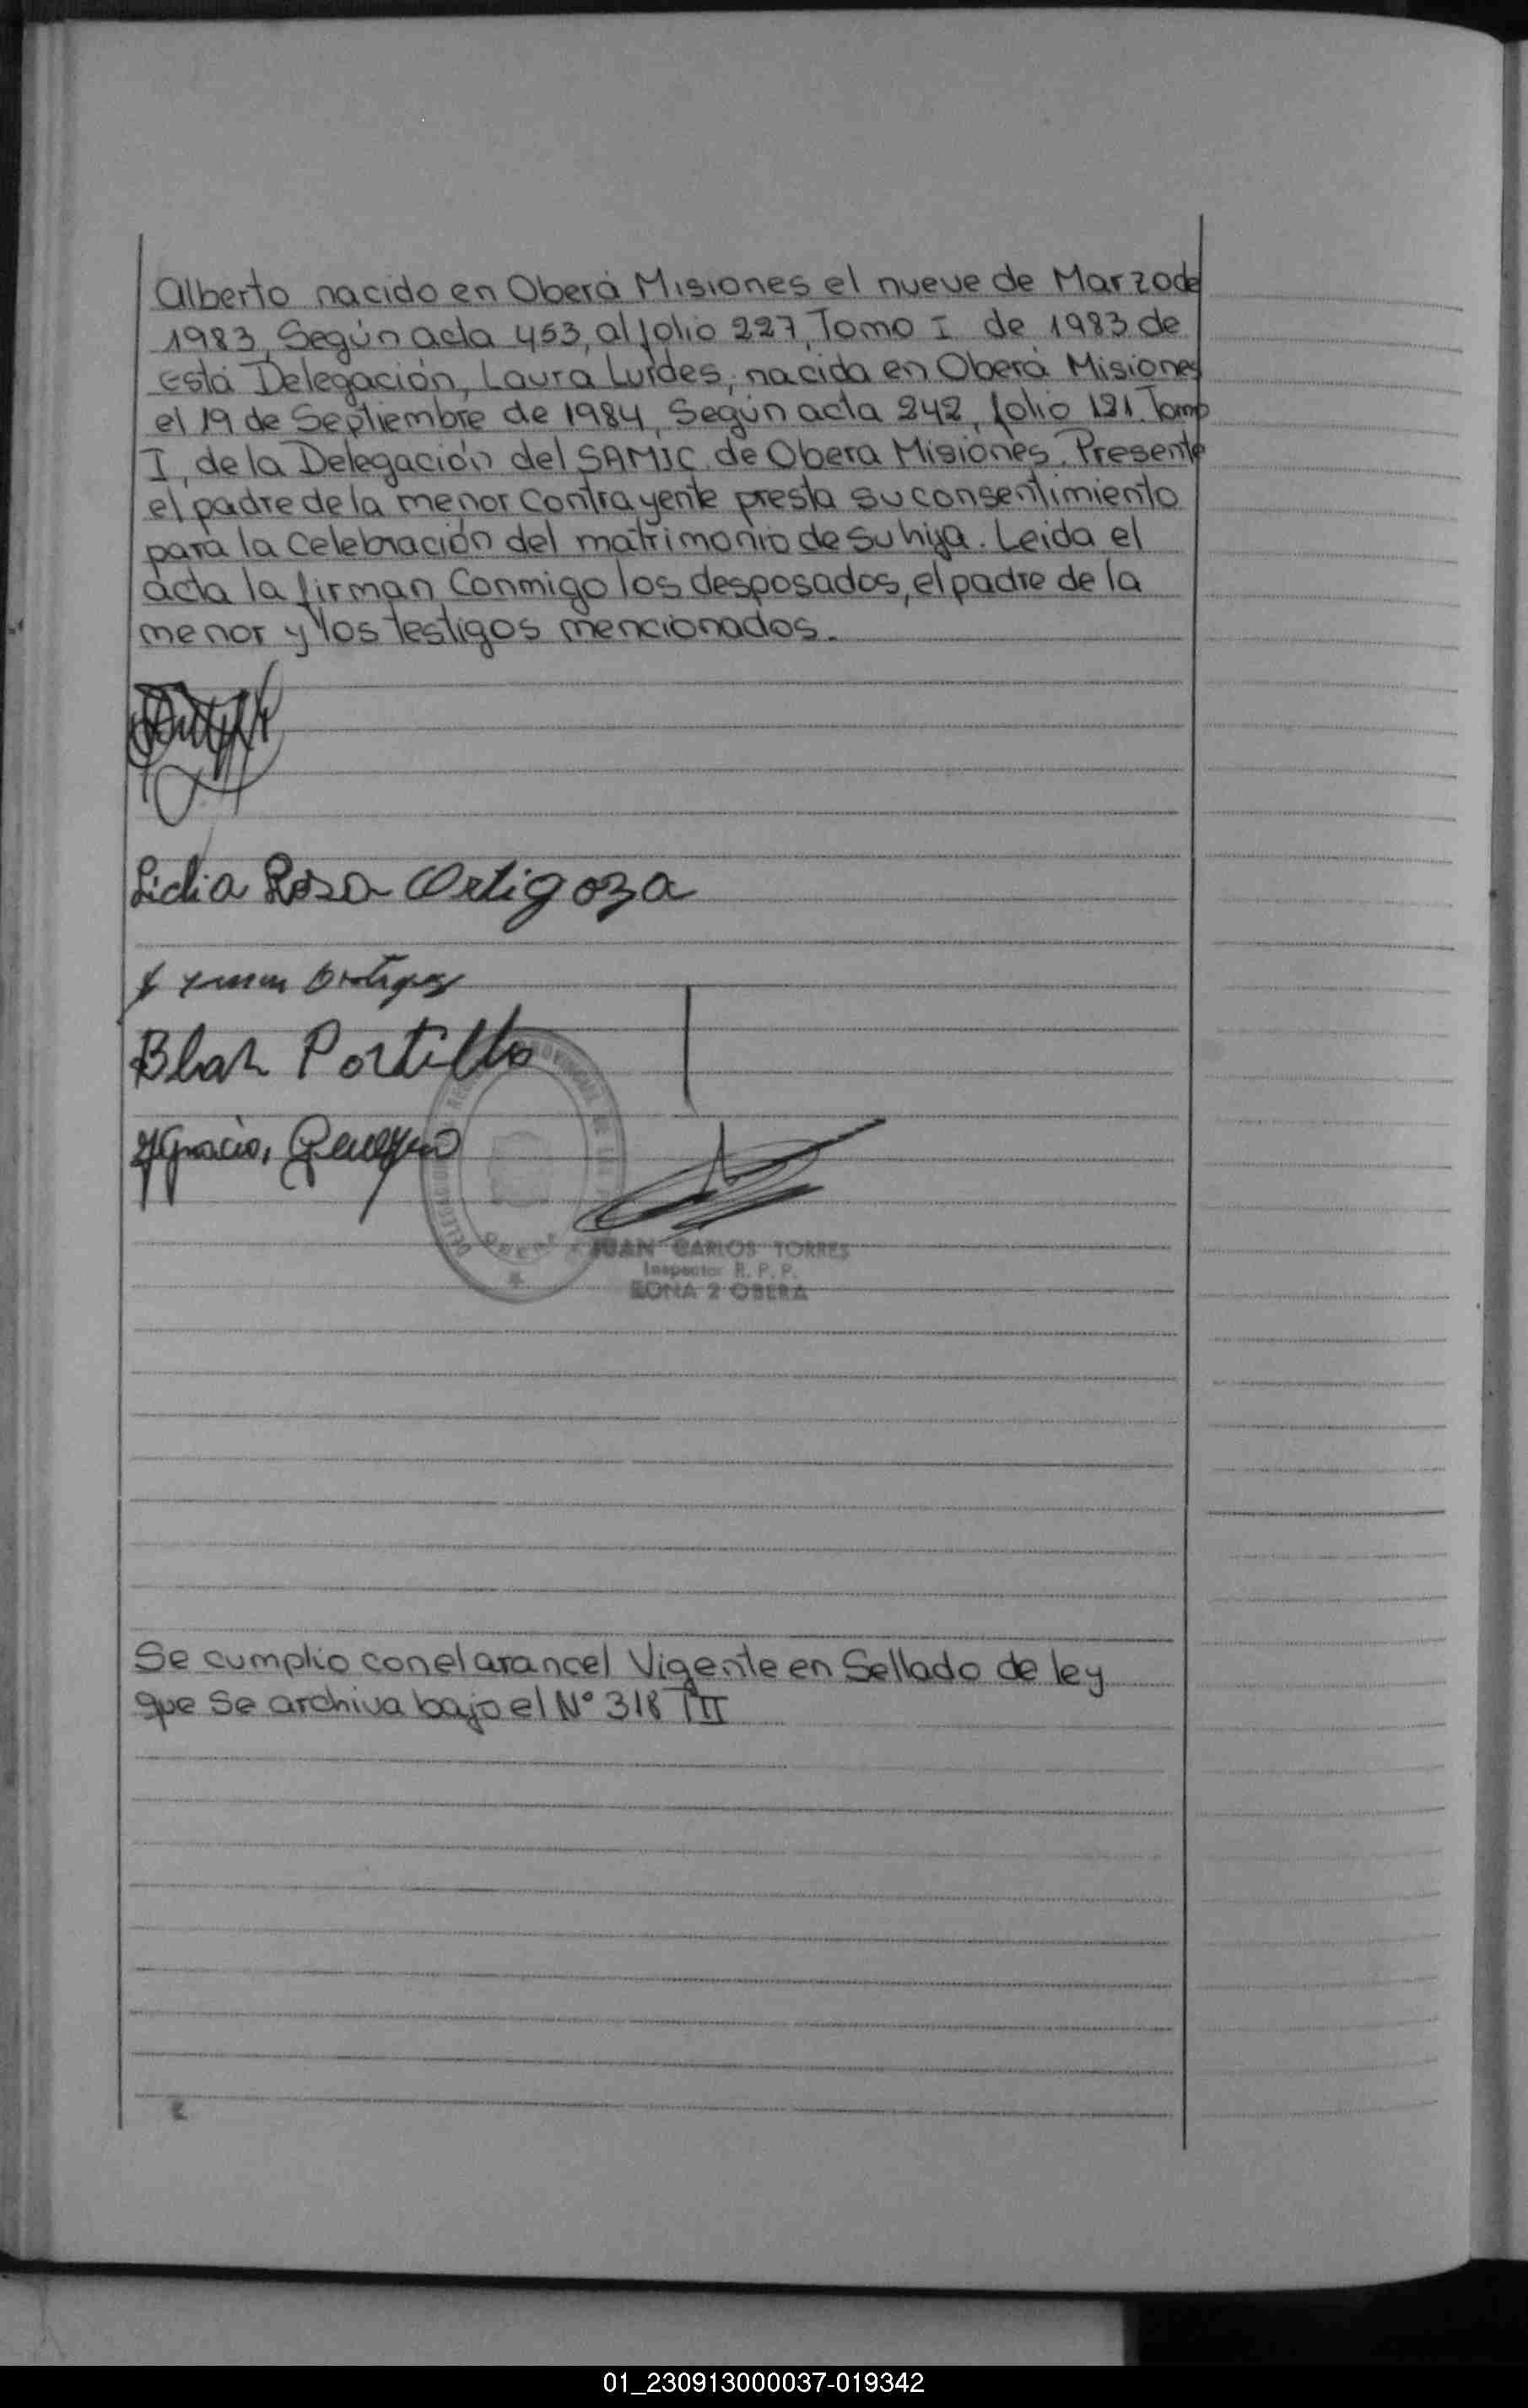 Alberto nacido en Oberá Misiones el nueve de Marzo de
1983, Según acta 453, al folio 227, Tomo I de 1983 de
está Delegación, Laura Lurdes, nacida en Oberá Misiones
el 19 de Septiembre de 1984, Según acta 242, folio 121. Tomo
I, de la Delegación del SAMIC. de Obera Misiónes. Presente
el padre de la menor contrayente presta su consentimiento
para la Celebración del matrimonio de su hija. Leida el
acta la firman Conmigo los desposados, el padre de la
menor y los testigos mencionados.
Lidia Rosa Ortigoza
Blas Portillo
Ygnacio,
JUAN CARLOS TORRES
Inspector R. P. P.
ZONA 2 OBERA
Se cumplio con el arancel Vigente en Sellado de ley
que Se archiva bajo el N° 318 TII
01_230913000037-019342